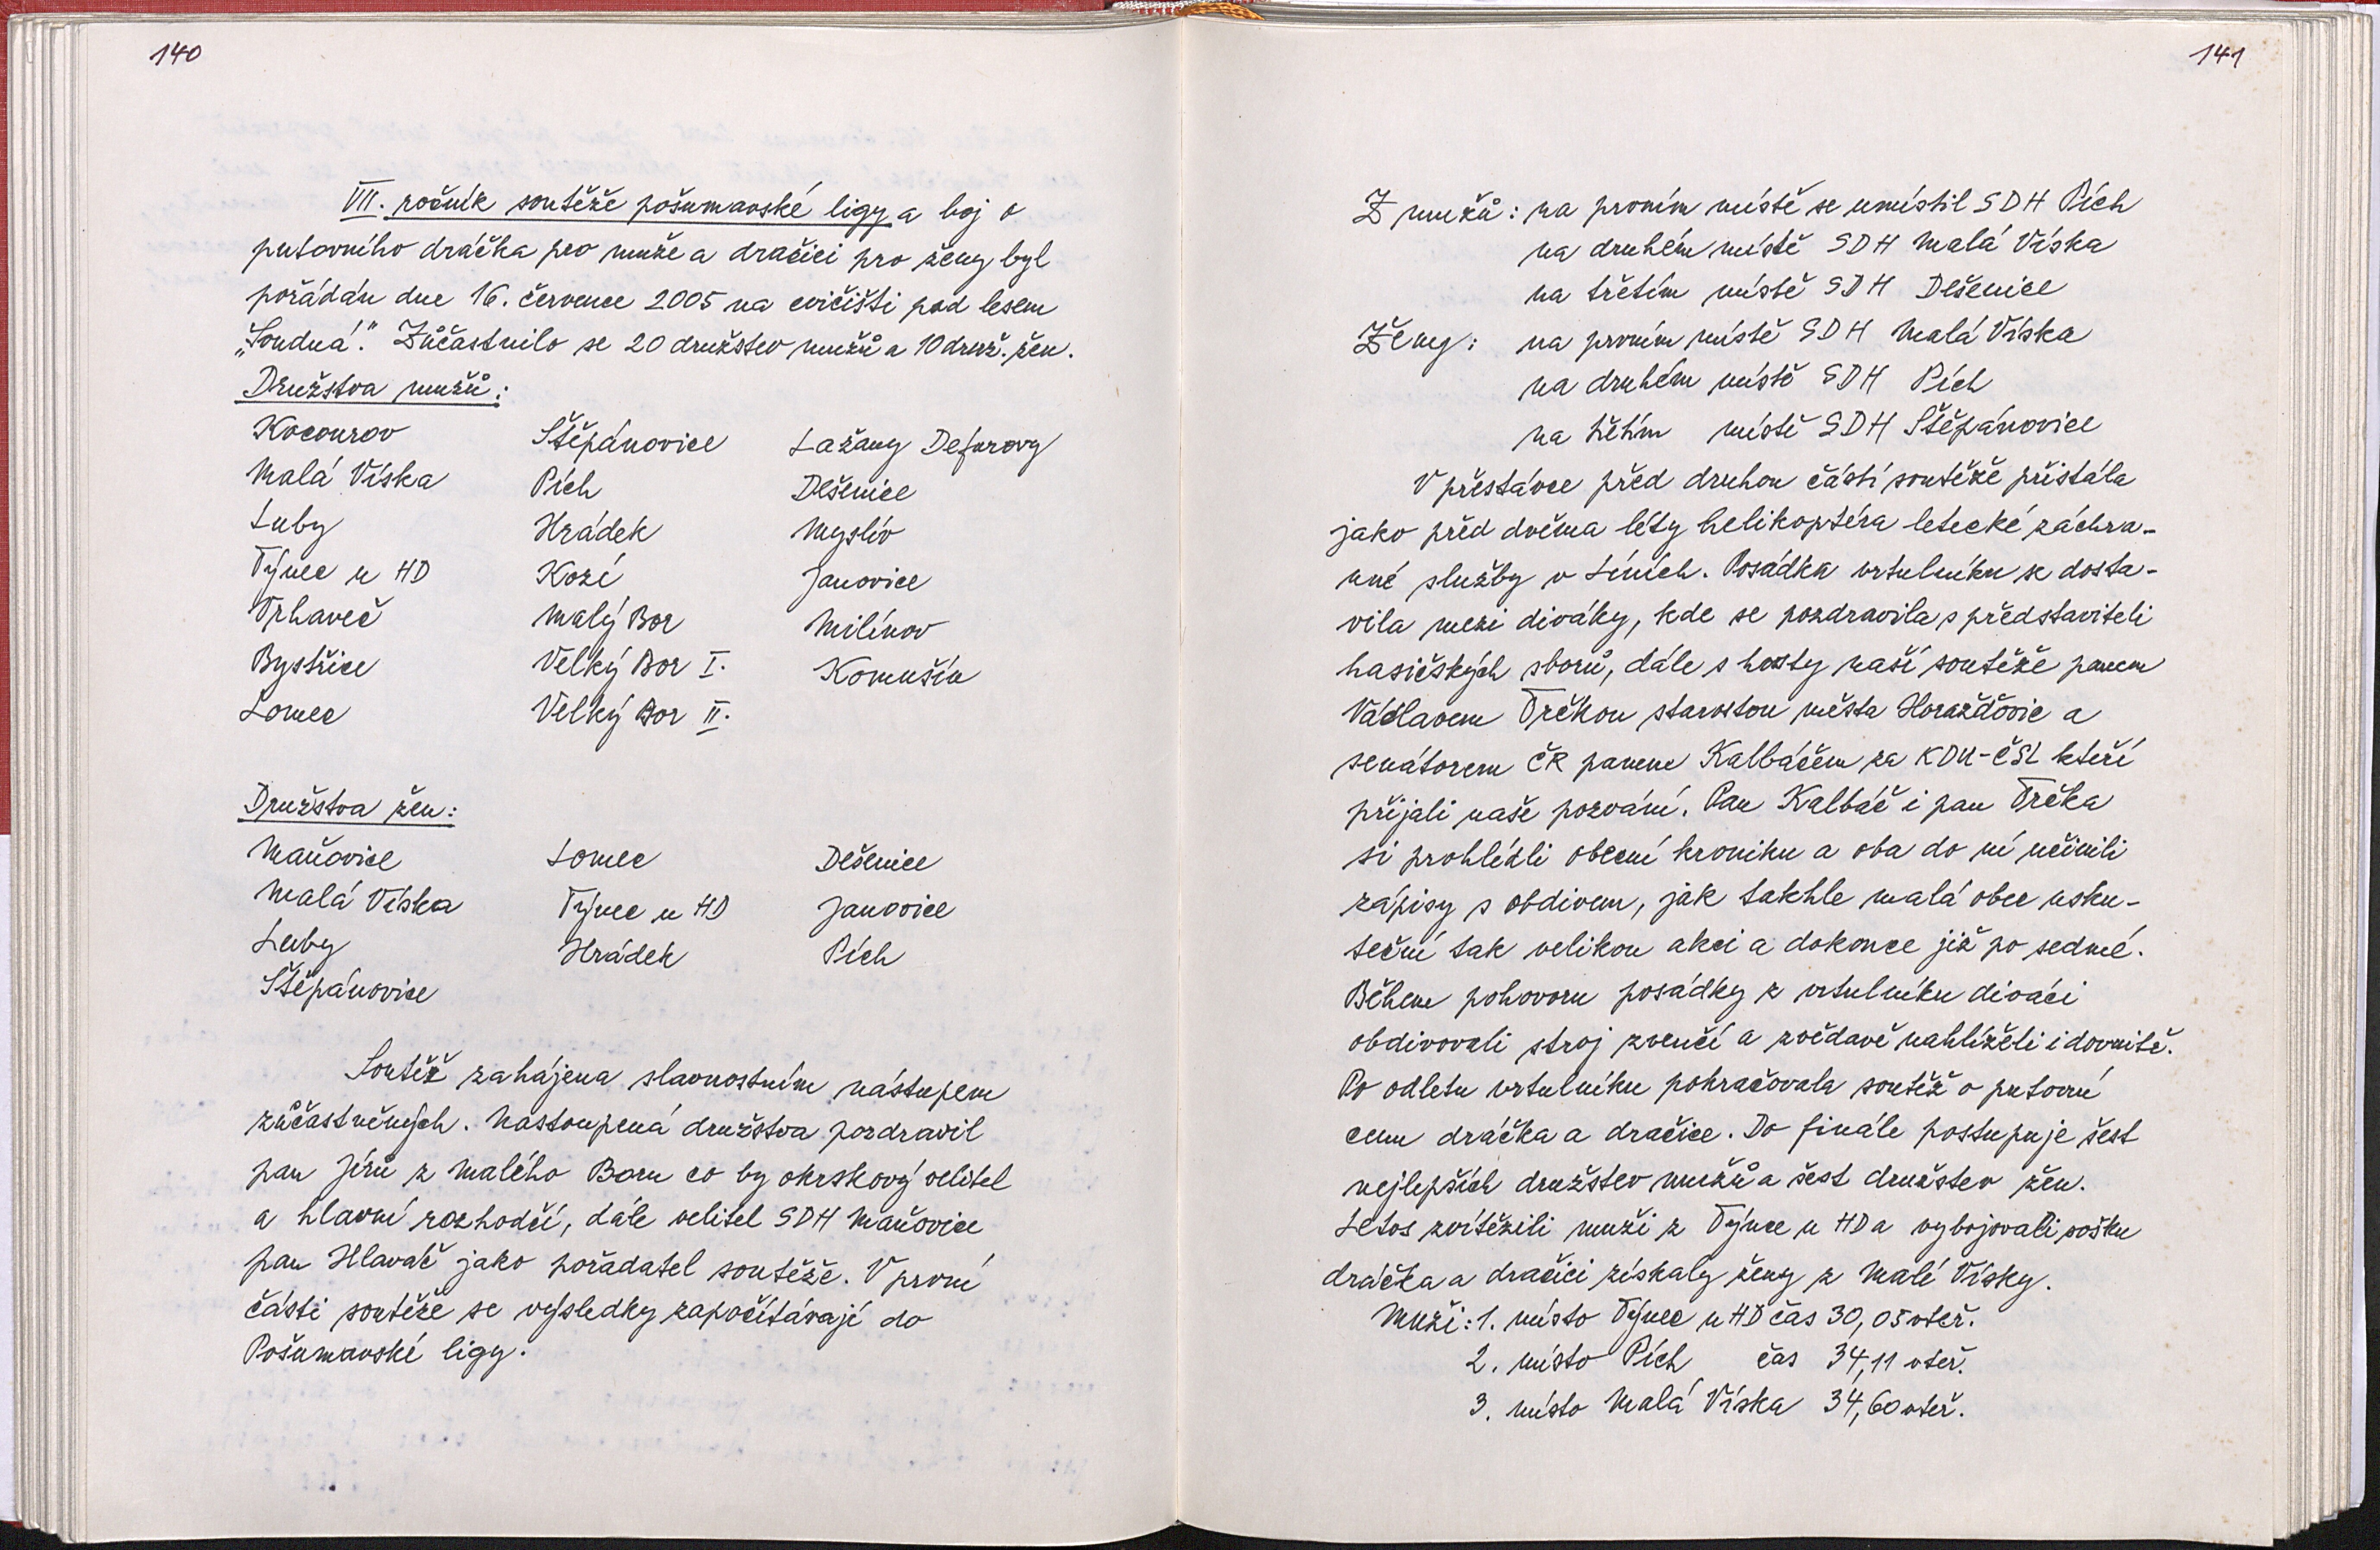 140
VII. ročník soutěže pošumavské ligy a boj o
putovního dráčka pro muže a dračici pro ženy byl
pořádán dne 16. července 2005 na cvičišti pod lesem
„Soudná". Zůčastnilo se 20 družstev mužů a 10 druž. žen.
Družstva mužů:
Kocourov Štěpánovice Lažany Defurovy
Malá Víska Pích Dešenice
Luby Hrádek Myslív
Týnec u HD Kozí Janovice
Trhaveč Malý Bor Milínov
Bystřice Velký Bor I. Komušín
Lomec Velký Bor II.
Družstva žen:
Maňovice Lomec Dešenice
Malá Víska Týnec u HD Janovice
Luby Hrádek Pích
Štěpánovice
Soutěž zahájena slavnostním nástupem
zůčastněných. Nastoupená družstva pozdravil
pan Jírů z Malého Boru co by okrskový velitel
a hlavní rozhodčí, dále velitel SDH Maňovice
pan Hlaváč jako pořadatel soutěže. V první
části soutěže se výsledky započítávají do
Pošumavské ligy.
141
Z mužů: na prvním místě se umístil SDH Pích
na druhém místě SDH Malá Víska
na třetím místě SDH Dešenice
Ženy: na prvním místě SDH Malá Víska
na druhém místě SDH Pích
na třetím místě SDH Štěpánovice
V přestávce před druhou částí soutěže přistála
jako před dvěma léty helikoptéra letecké záchra-
nné služby v Líních. Posádka vrtulníku se dosta-
vila mezi diváky, kde se pozdravila s představiteli
hasičských sborů, dále s hosty naší soutěže panem
Václavem Trčkou starostou města Horažďovic a
senátorem ČR panem Kalbáčem za KDU-ČSL kteří
přijali naše pozvání. Pan Kalbáč i pan Trčka
si prohlédli obecní kroniku a oba do ní učinili
zápisy s obdivem, jak takhle malá obec usku-
teční tak velikou akci a dokonce již po sedmé.
Během pohovoru posádky z vrtulníku diváci
obdivovali stroj zvenčí a zvědavě nahlíželi i dovnitř.
Po odletu vrtulníku pokračovala soutěž o putovní
cenu dráčka a dračice. Do finále postupuje šest
nejlepších družstev mužů a šest družstev žen.
Letos zvítězili muži z Týnce u HD a vybojovali sošku
dráčka a dračici získaly ženy z Malé Vísky.
Muži: 1. místo Týnec u HD čas 30,05 vteř.
2. místo Pích čas 34,11 vteř.
3. místo Malá Víska 34,60 vteř.